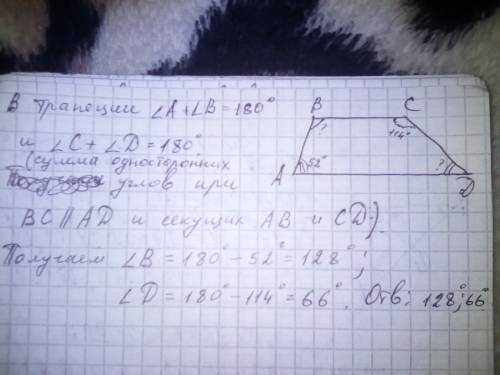 В трапеции ∠A+∠B=180°
и ∠C+∠D=180°
(сумма односторонних
углов при
BC∥AD и секущих AB и CD.)
Получаем ∠B = 180° - 52° = 128°;
∠D = 180° - 114° = 66°. Отв: 128°; 66°
B C
? 114°
A 52° ? D